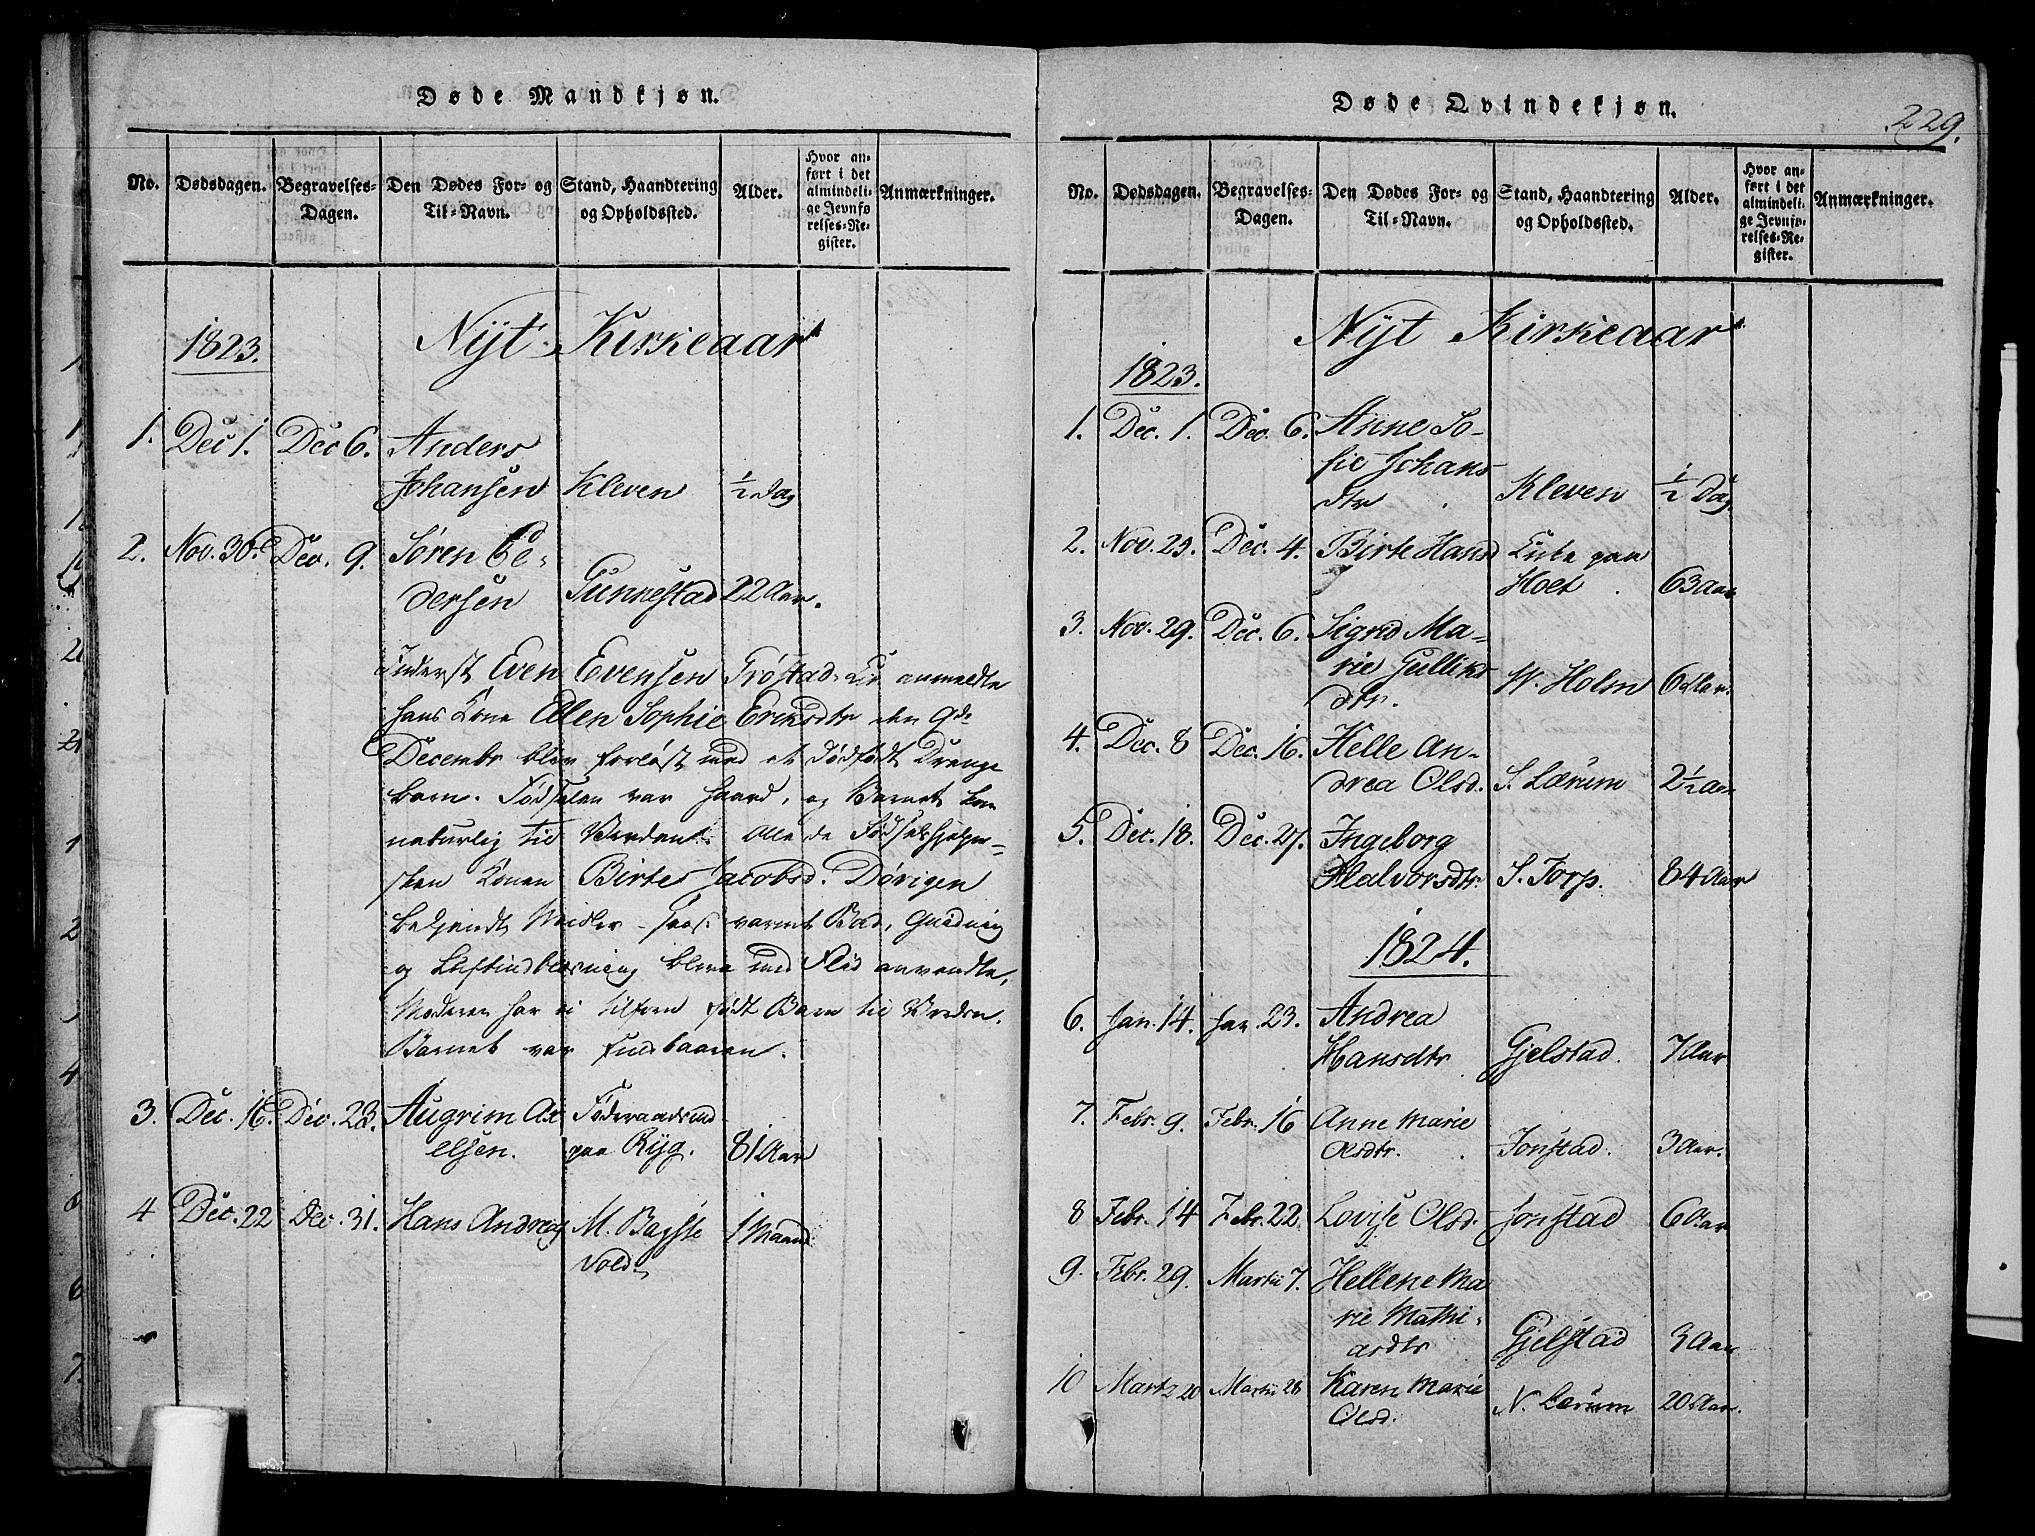 Døde Mandkjøn.
No. Dødsdagen. Begravelses-Dagen. Den Dødes For- og Til-Navn. Stand, Haandtering og Opholdssted. Alder. Hvor anført i det almindelige Jevnførelses-Register. Anmærkninger.
1823. Nyt Kirkeaar
1. Dec 1. Dec 6. Anders
Johansen Kleven ½ Dag
2. Nov. 30. Dec. 9. Søren Pe-
dersen Gunnestad 22 Aar.
Inderst Even Evensen Trøstad anmeldte
hans Kone Ellen Sophie Eriksdtr den 9de
Decembr blev forløst med et dødfødt Drenge
barn. Fødselen var haard, og Barnet kom
naturlig til Verden. Alle de Fødselshjelper-
sken Konen Birte Jacobsd. Dørigen
bekjendte Midler saas. varmt Bad, Gnidning
og Luftindblæsning bleve med Flid anvendte,
Moderen har ei tilforn født Barn til Verden.
Barnet var fuldbaaren.
3. Dec. 16. Dec. 28. Augrim Ax
elsen. Føderaadsmd
paa Ryg. 81 Aar
4 Dec. 22 Dec. 31. Hans Andreas M. Baggste
vold 1 Maand
Døde Qvindekjøn.
229.
No. Dødsdagen. Begravelses-Dagen. Den Dødes For- og Til-Navn. Stand, Haandtering og Opholdssted. Alder. Hvor anført i det almindelige Jevnførelses-Register. Anmærkninger.
Nyt Kirkeaar
1823.
1. Dec. 1. Dec. 6. Anne So-
fie Johans
dtr. Kleven ½ Dag
2. Nov. 29. Dec. 4. Birte Hansd Enke paa
Hoet 63 Aar
3. Nov. 29. Dec. 6. Sigrid Ma-
rie Gulliks
dtr. W. Holm 6 Aar.
4. Dec. 8 Dec. 16. Helle An-
drea Olsd. S. Lærum 2½ Aar
5. Dec. 18. Dec. 27. Ingeborg
Halvorsdtr. S. Torp. 84 Aar
1824.
6. Jan. 14. Jan. 23. Andrea
Hansdtr Gjelstad. 7 Aar
7. Febr. 9. Febr. 16 Anne Marie
Olsdtr. Jonstad. 3 Aar.
8 Febr. 14 Febr. 22 Lovise Olsd. Jonstad 6 Aar
9. Febr. 29. Martii 7. Hellene Ma
rie Mathi-
asdtr Gjelstad 3 Aar
10 Martz 20 Martii 28 Karen Marie
Olsd. N. Lærum 20 Aar.